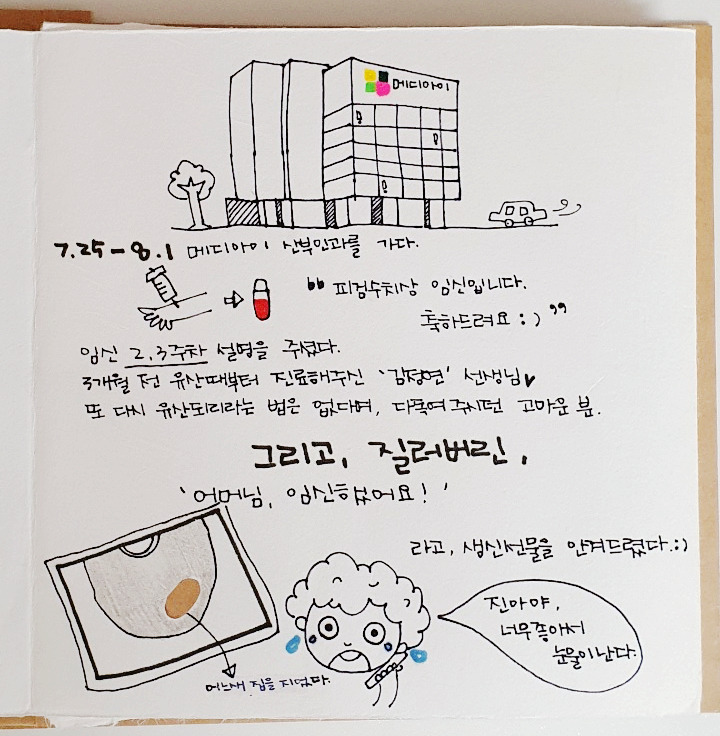 메디아이
7.25-8.1 메디아이 산부인과를 가다.
“ 피검수치상 임신입니다.
축하드려요 : ) ”
임신 2,3주차 설명을 주셨다.
3개월 전 유산때부터 진료해주신 '김정연' 선생님♥
또 다시 유산되리라는 법은 없다며, 다독여주시던 고마운 분.
그리고, 질러버린,
'어머님, 임신했어요! '
라고, 생신선물을 안겨드렸다.:)
진아야,
너무좋아서
눈물이난다.
어느새 집을 지었다.